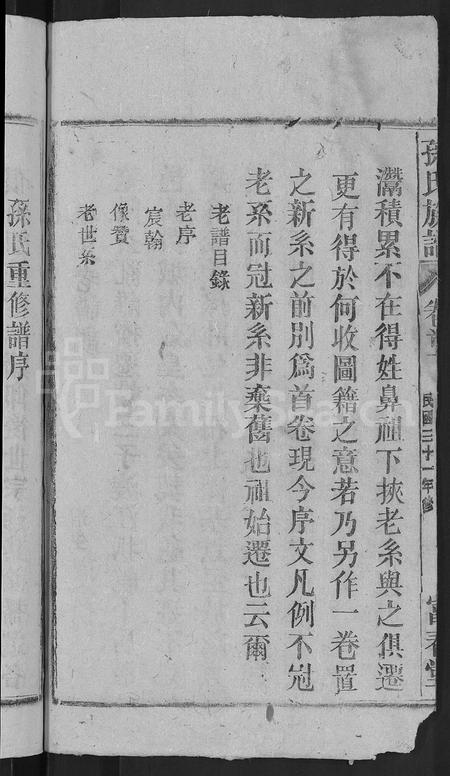 孫氏族譜
卷首
民國三十一年修
富春堂
灊積累不在得姓鼻祖下挾老系與之俱遷
更有得於何收圖籍之意若乃另作一卷置
之新系之前別爲首卷現今序文凡例不冠
老系而冠新系非棄舊也祖始遷也云爾
老譜目錄
老序
宸翰
像贊
老世系
孫氏重修譜序
FamilySearch